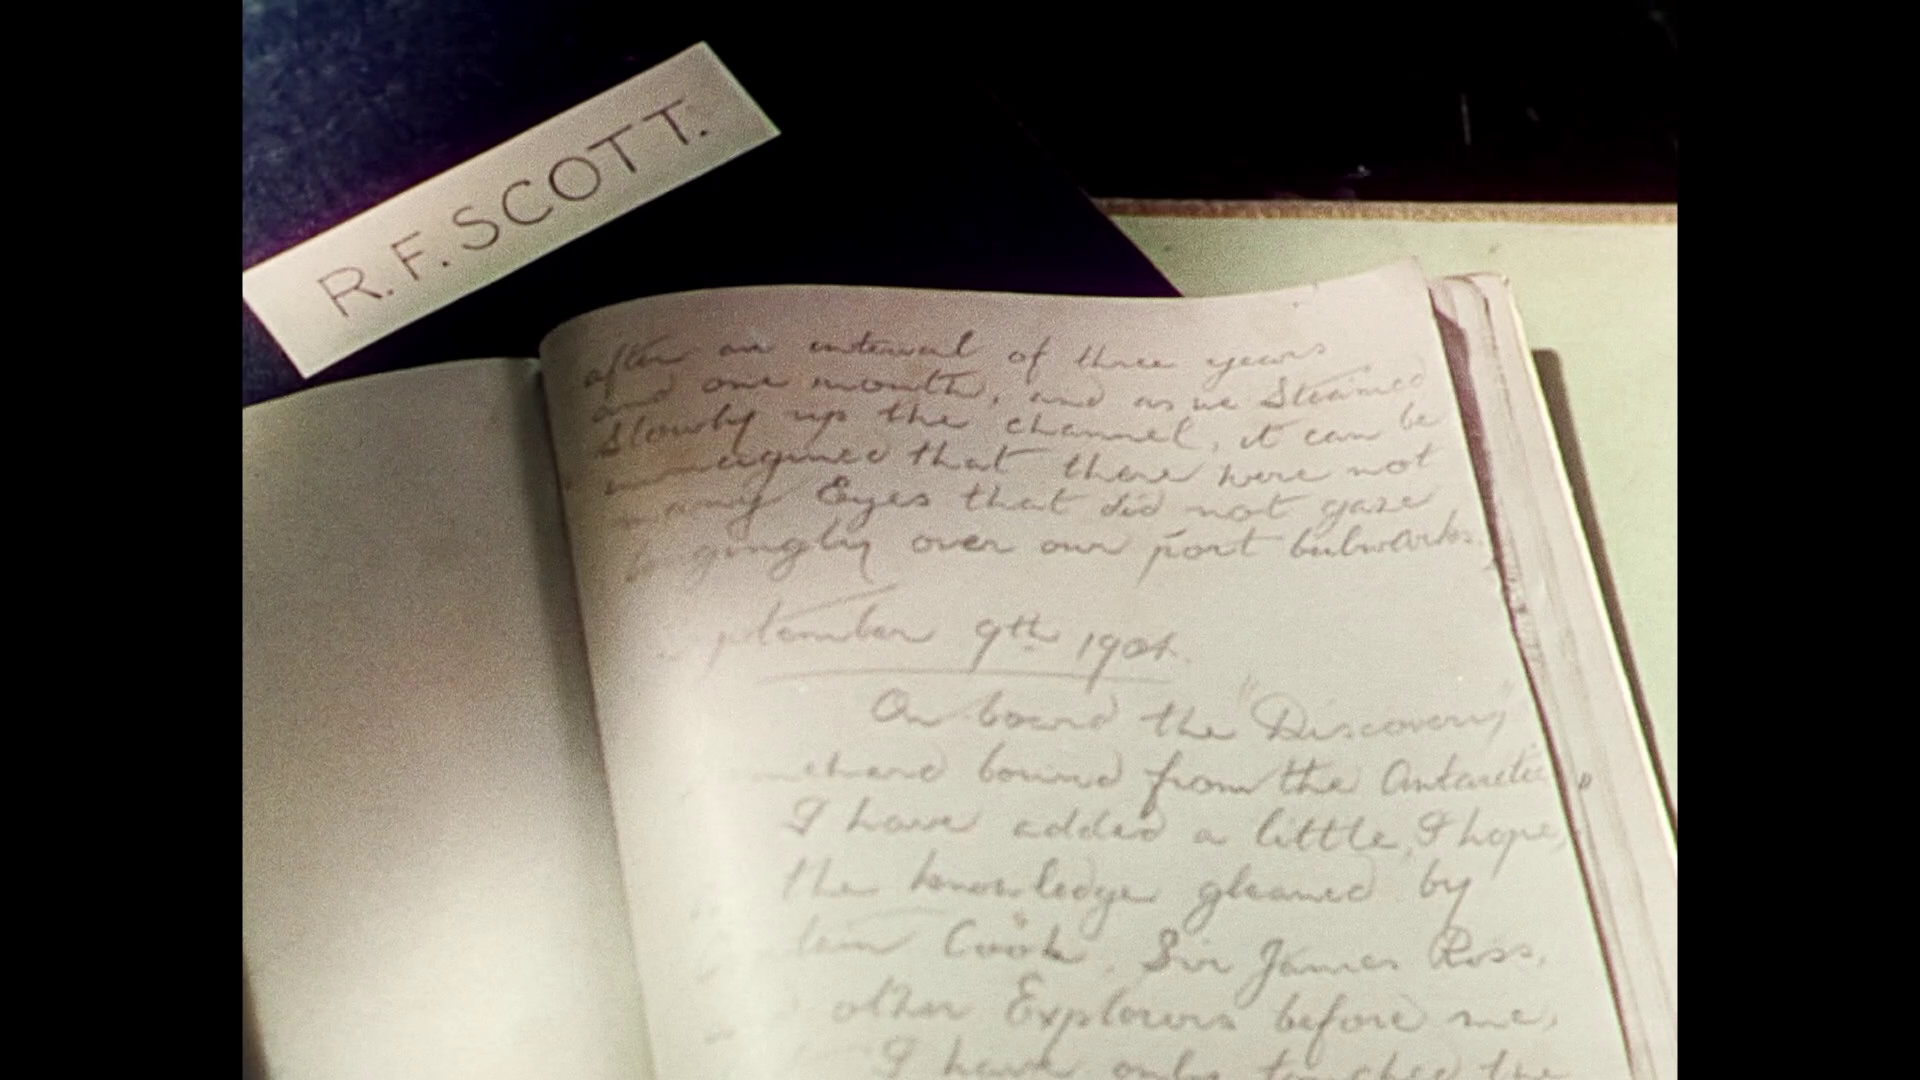 R. F. SCOTT.
after an interval of three years
and one month, and as we Steamed
Slowly up the channel, it can be
imagined that there were not
many Eyes that did not gaze
longingly over our port bulwarks.
ptember 9th 1904.
On board the "Discovery"
bound from the Antarctic,
I have added a little, I hope,
the knowledge gleaned by
Cook, Sir James Ross,
other Explorers before me,
I have only touched the